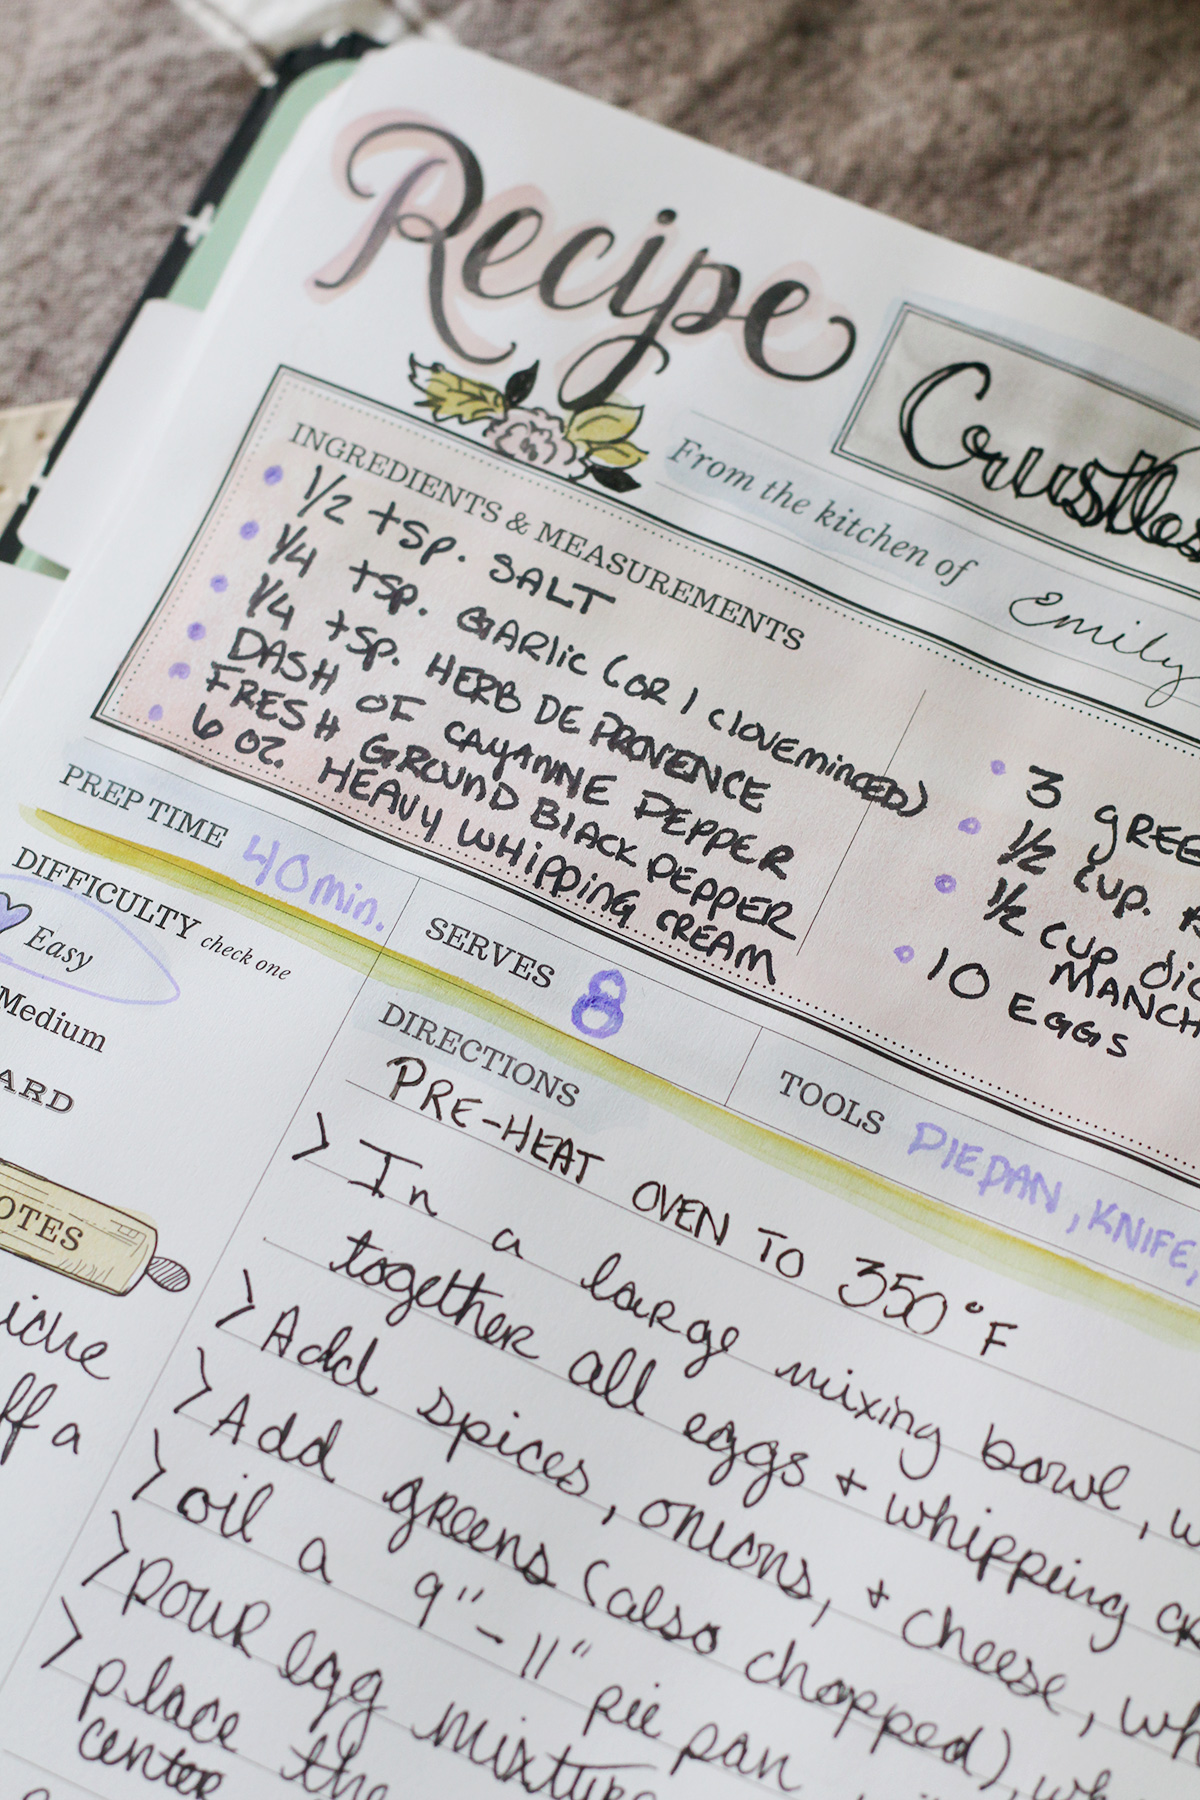 Recipe
From the kitchen of Emily
INGREDIENTS & MEASUREMENTS
1/2 tsp. SALT
1/4 tsp. GARLIC (OR 1 CLOVE MINCED)
1/4 tsp. HERB DE PROVENCE
DASH OF CAYANNE PEPPER
FRESH GROUND BLACK PEPPER
6 OZ. HEAVY WHIPPING CREAM
3 GREE
1/2 CUP.
1/2 CUP DIC
MANCH
10 EGGS
PREP TIME 40 min.
SERVES 8
TOOLS PIEPAN, KNIFE,
DIFFICULTY check one
Easy
Medium
ARD
OTES
iche
ff a
DIRECTIONS
PRE-HEAT OVEN TO 350°F
> In a large mixing bowl, w
together all eggs + whipping cr
> Add spices, onions, + cheese, wh
> Add greens (also chopped), wh
> oil a 9"-11" pie pan
> POUR egg mixture
> place the
center